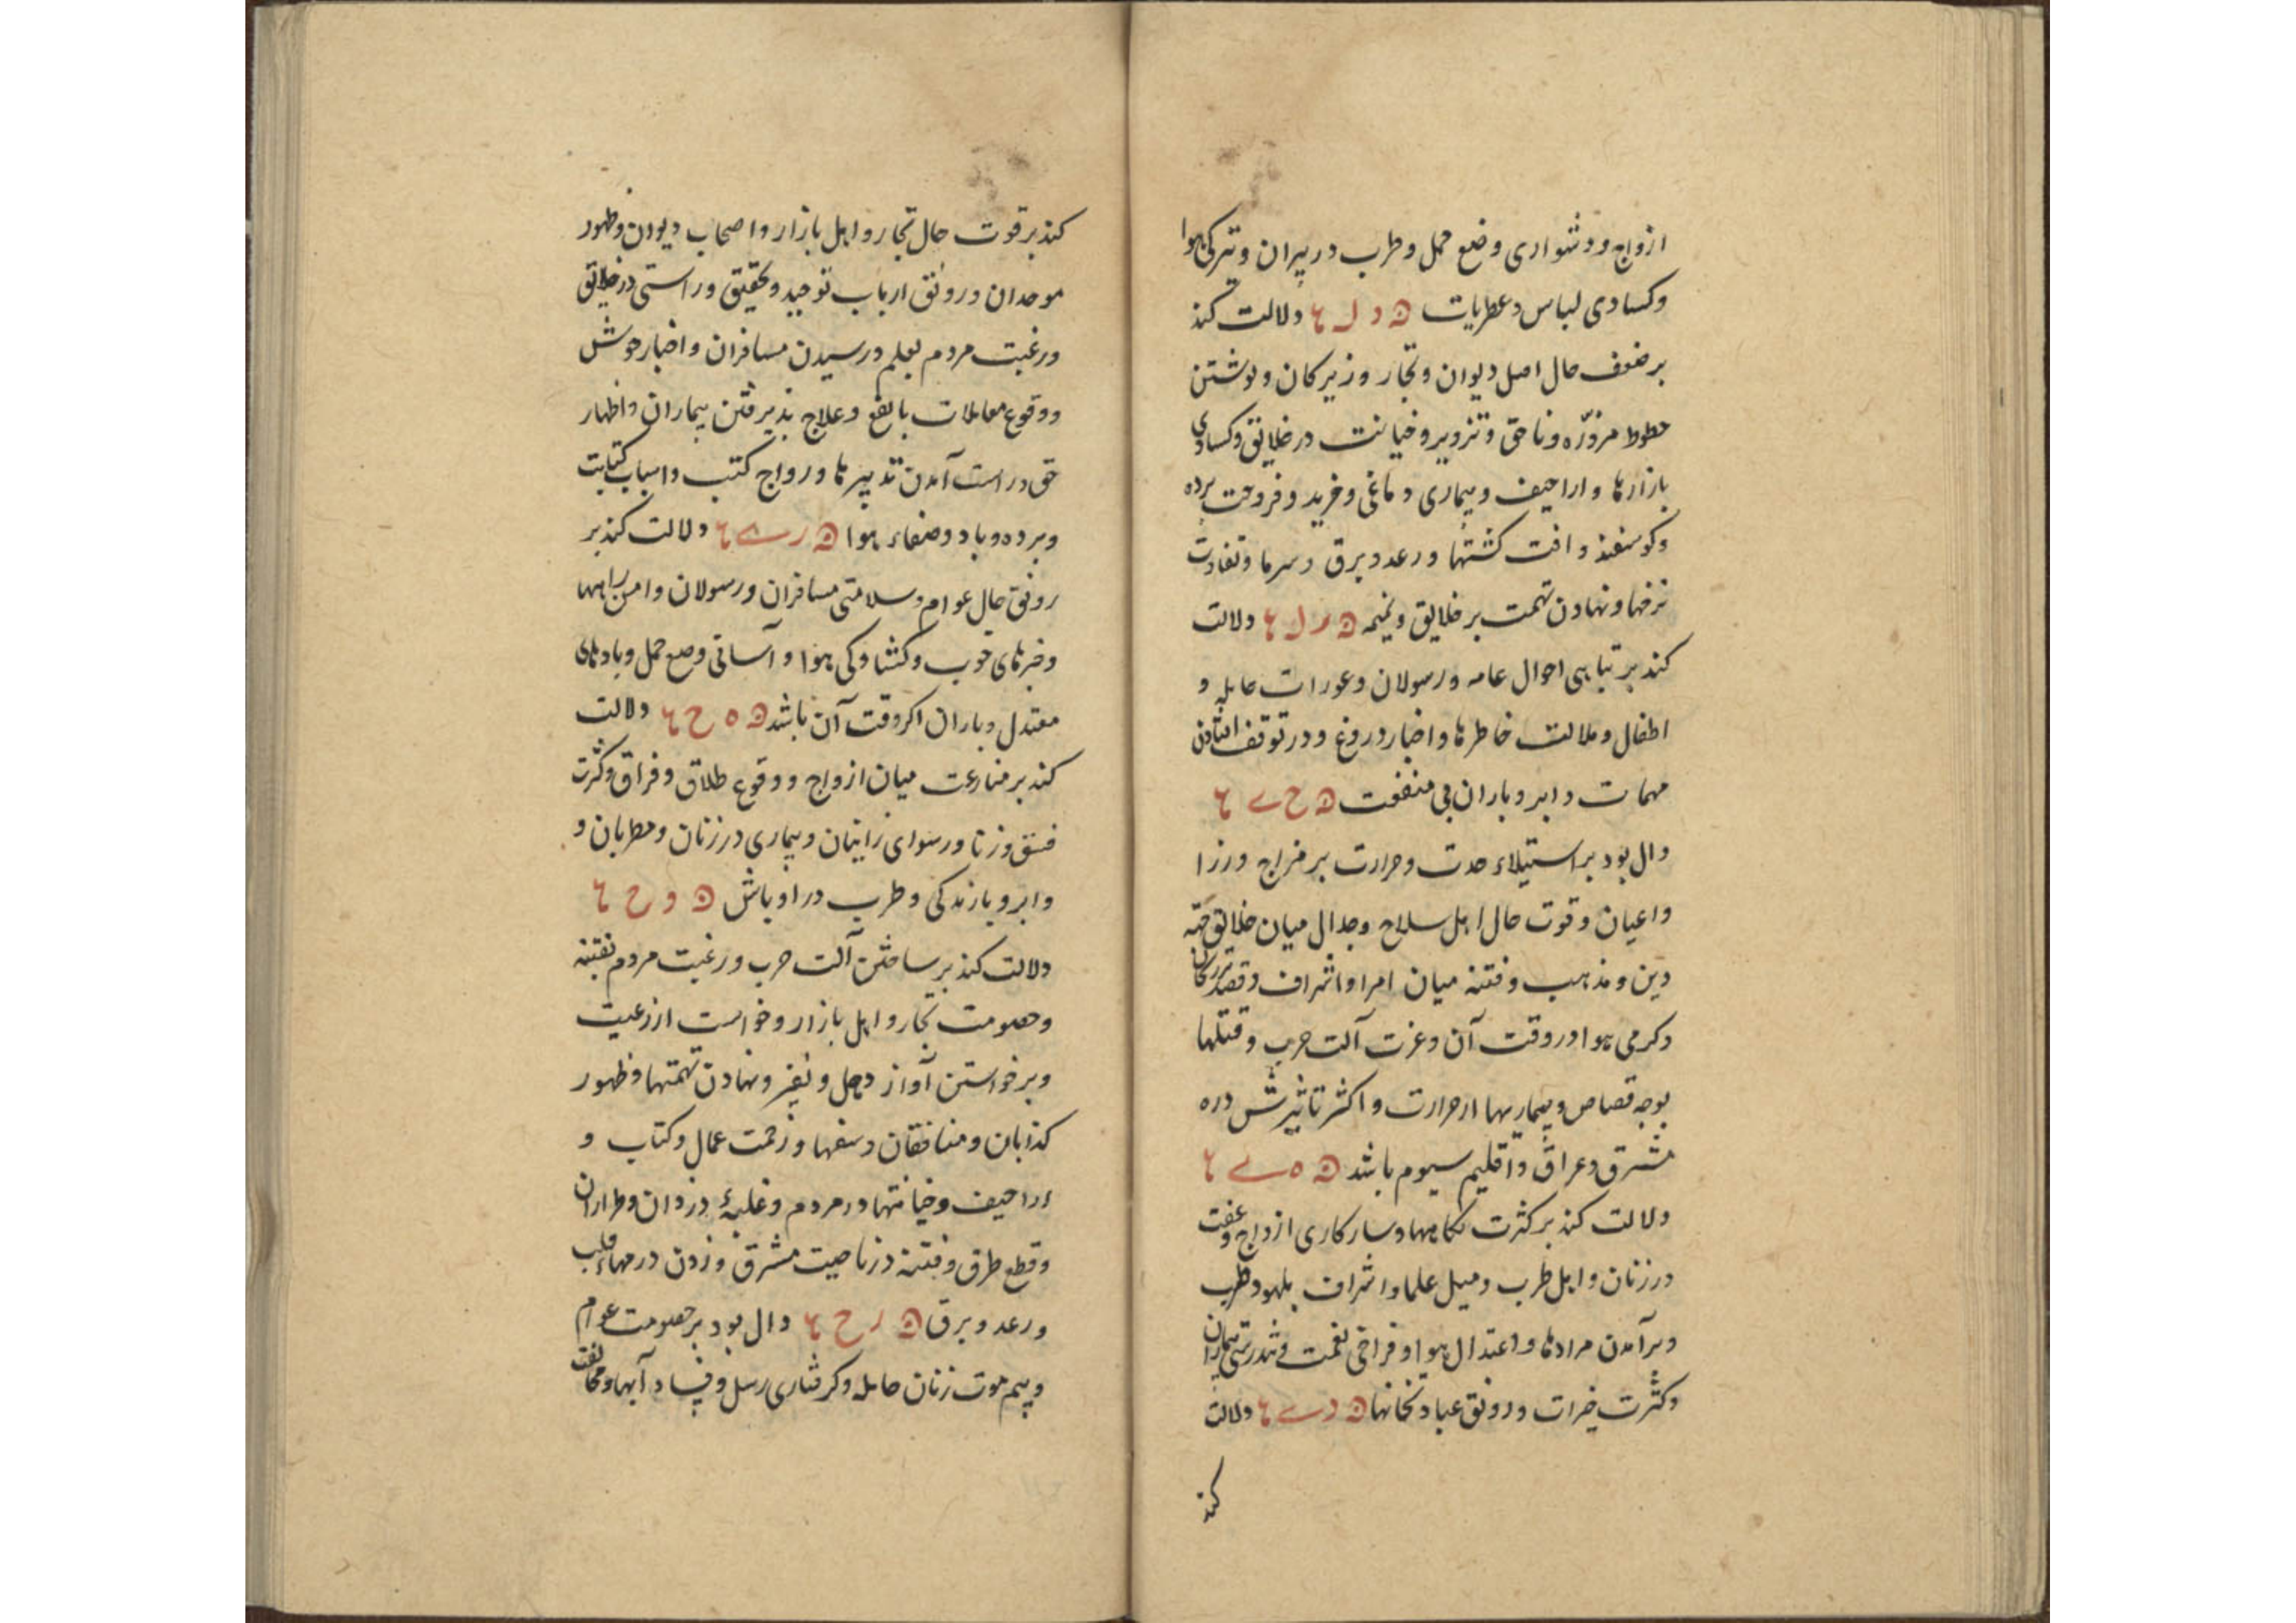 ازواج و دشواری وضع حمل و طرب در پیران و تیرکی هوا
و کسادی لباس و عطریات ه د ل ع دلالت کند
بر ضعف حال اهل دیوان و تجار و زیرکان و نوشتن
خطوط مزوّره و ناحق و تزویر و خیانت در خلایق و کسادی
بازارها و اراجیف و بیماری دماغی و خرید و فروخت برده
و کوسفند و افت کشتها و رعد و برق و سرما و تفاوت
نرخها و نهادن تهمت بر خلایق و نمیمه ه ر ل ع دلالت
کند بر تباهی احوال عامه و رسولان و عورات حامله و
اطفال و ملالت خاطرها و اخبار دروغ و در توقف افتادن
مهمات و ابر و باران بی منفعت ه ح ے ع
دال بود بر استیلاء حدت و حرارت بر مزاج وزرا
و اعیان و قوت حال اهل سلاح و جدال میان خلایق
دین و مذهب و فتنه میان امرا و اشراف و قصد
و کرمی هوا در وقت آن و عزت آلت حرب و قتلها
بوجه قصاص و بیماریها از حرارت و اکثر تاثیرش در
مشرق و عراق و اقلیم سیوم باشد ه ه ے ع
دلالت کند بر کثرت نکاحها و سازکاری ازدواج و عفت
در زنان و اهل طرب و میل علما و اشراف بلهو و طرب
و برآمدن مرادها و اعتدال هوا و فراخی نعمت و تندرستی بیماران
و کثرت خیرات و رونق عبادتخانها ه د ے ع دلالت
کند
کند بر قوت حال تجار و اهل بازار و اصحاب دیوان و ظهور
موحدان و رونق ارباب توحید و تحقیق و راستی در خلایق
و رغبت مردم بعلم و رسیدن مسافران و اخبار خوش
و وقوع معاملات بانفع و علاج پذیرفتن بیماران و اظهار
حق و راست آمدن تدبیرها و رواج کتب و اسباب کتابت
و برده و باد و صفاء هوا ه ر ے ع دلالت کند بر
رونق حال عوام و سلامتی مسافران و رسولان و امن راهها
و خبرهای خوب و کشادکی هوا و آسانی وضع حمل و بادهای
معتدل و باران اکر وقت آن باشد ه ه ح ع دلالت
کند بر منازعت میان ازواج و وقوع طلاق و فراق و کثرت
فسق و زنا و رسوای زانیان و بیماری در زنان و مطربان و
و ابر و بارندکی و طرب در اوباش ه و ح ع
دلالت کند بر ساختن آلت حرب و رغبت مردم بفتنه
و خصومت تجار و اهل بازار و خواست از رعیت
و برخواستن آواز دهل و نفیر و نهادن تهمتها و ظهور
کذابان و منافقان و سفها و زحمت عمال و کتاب و
اراجیف و خیانتها در مردم و غلبهٔ دزدان و طراران
و قطع طرق و فتنه در ناحیت مشرق و زدن درمهاء قلب
و رعد و برق ه ر ح ع دال بود بر خصومت عوام
و بیم موت زنان حامله و کرفتاری رسل و فساد آبها و مخالفت